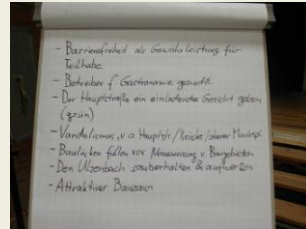 - Barrierefreiheit als Gewährleistung für
Teilhabe
- Betreiber f Gastronomie gesucht
- Der Hauptstraße ein einladendes Gesicht geben
(grün)
- Vandalismus, v.a. Hauptstr / Brücke / oberer
- Baulücken füllen vor v Baugebieten
- Den Ulzenbach sauberhalten & aufwerten
- Attraktiver